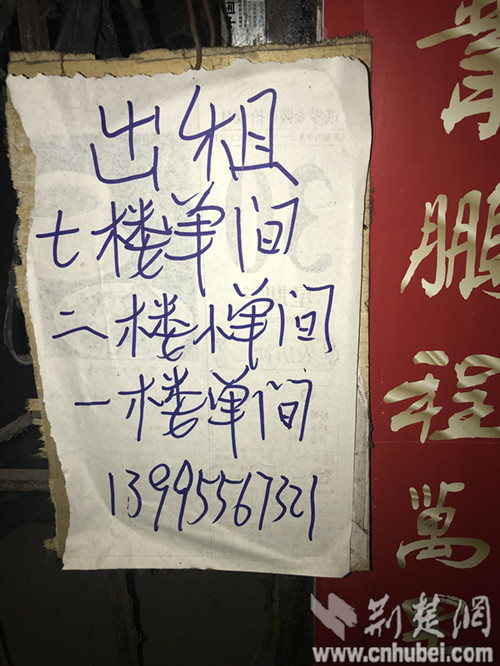 出租
七楼单间
二楼惮间
一楼单间
13995567321
鹏程萬
荆楚网
www.cnhubei.com